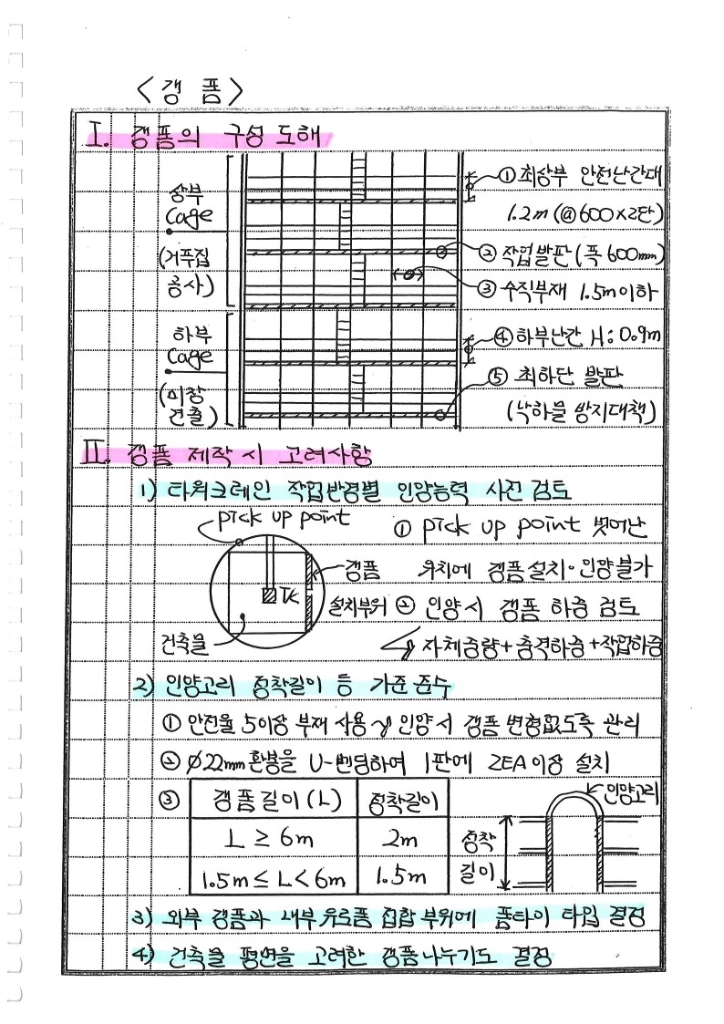 <갱 폼>
I. 갱폼의 구성 도해
상부
Cage
(거푸집
공사)
하부
Cage
(미장
견출)
① 최상부 안전난간대
1.2m (@600×2단)
② 작업발판 (폭 600mm)
③ 수직부재 1.5m 이하
④ 하부난간 H: 0.9m
⑤ 최하단 발판
(낙하물 방지대책)
II. 갱폼 제작 시 고려사항
1) 타워크레인 작업반경별 인양능력 사전 검토
pick up point
갱폼
설치부위
T/C
건축물
① pick up point 벗어난
위치에 갱폼 설치·인양 불가
② 인양시 갱폼 하중 검토
자체중량+충격하중+작업하중
2) 인양고리 정착길이 등 기준 준수
① 안전율 5이상 부재 사용 인양시 갱폼 변형없도록 관리
② Ø22mm 환봉을 U-벤딩하여 1판에 2EA 이상 설치
③ 갱폼길이 (L) 정착길이
L ≥ 6m 2m
1.5m ≤ L < 6m 1.5m
인양고리
정착
길이
3) 외부 갱폼과 내부 유로폼 접합 부위에 폼타이 타입 결정
4) 건축물 평면을 고려한 갱폼 나누기도 결정